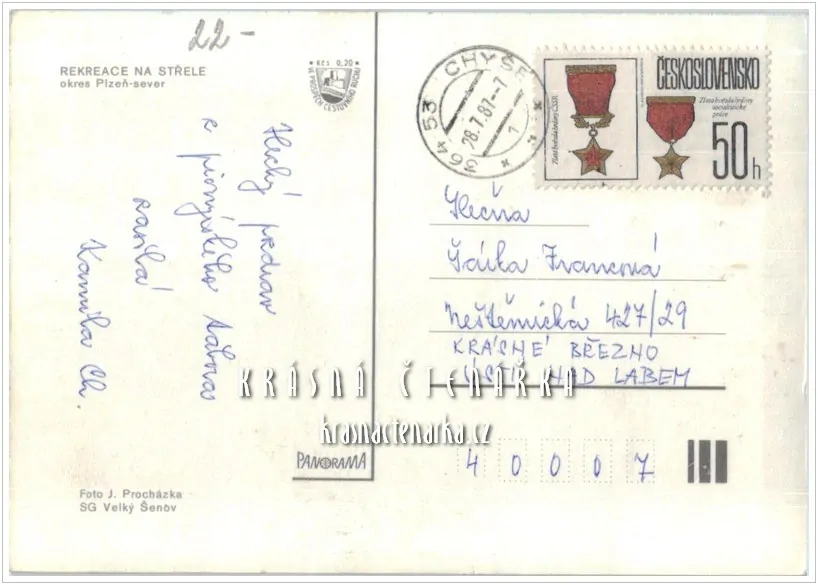 22-
REKREACE NA STŘELE
okres Plzeň-sever
KčS 0,20
VE PROSPĚCH CESTOVNÍHO RUCHU
364 53 CHYŠE
28.7.87-7
1
ČESKOSLOVENSKO
Zlatá hvězda hrdiny ČSSR
Zlatá hvězda hrdiny
socialistické
práce
50h
Hezký pozdrav
z pionýrského tábora
zasílá
Kamila Ch.
Slečna
Šárka Francová
Neštěmická 427/29
KRÁSNÉ BŘEZNO
ÚSTÍ NAD LABEM
KRÁSNÁ ČTENÁŘKA
krasnactenarka.cz
PANORAMA
4 0 0 0 7
Foto J. Procházka
SG Velký Šenov